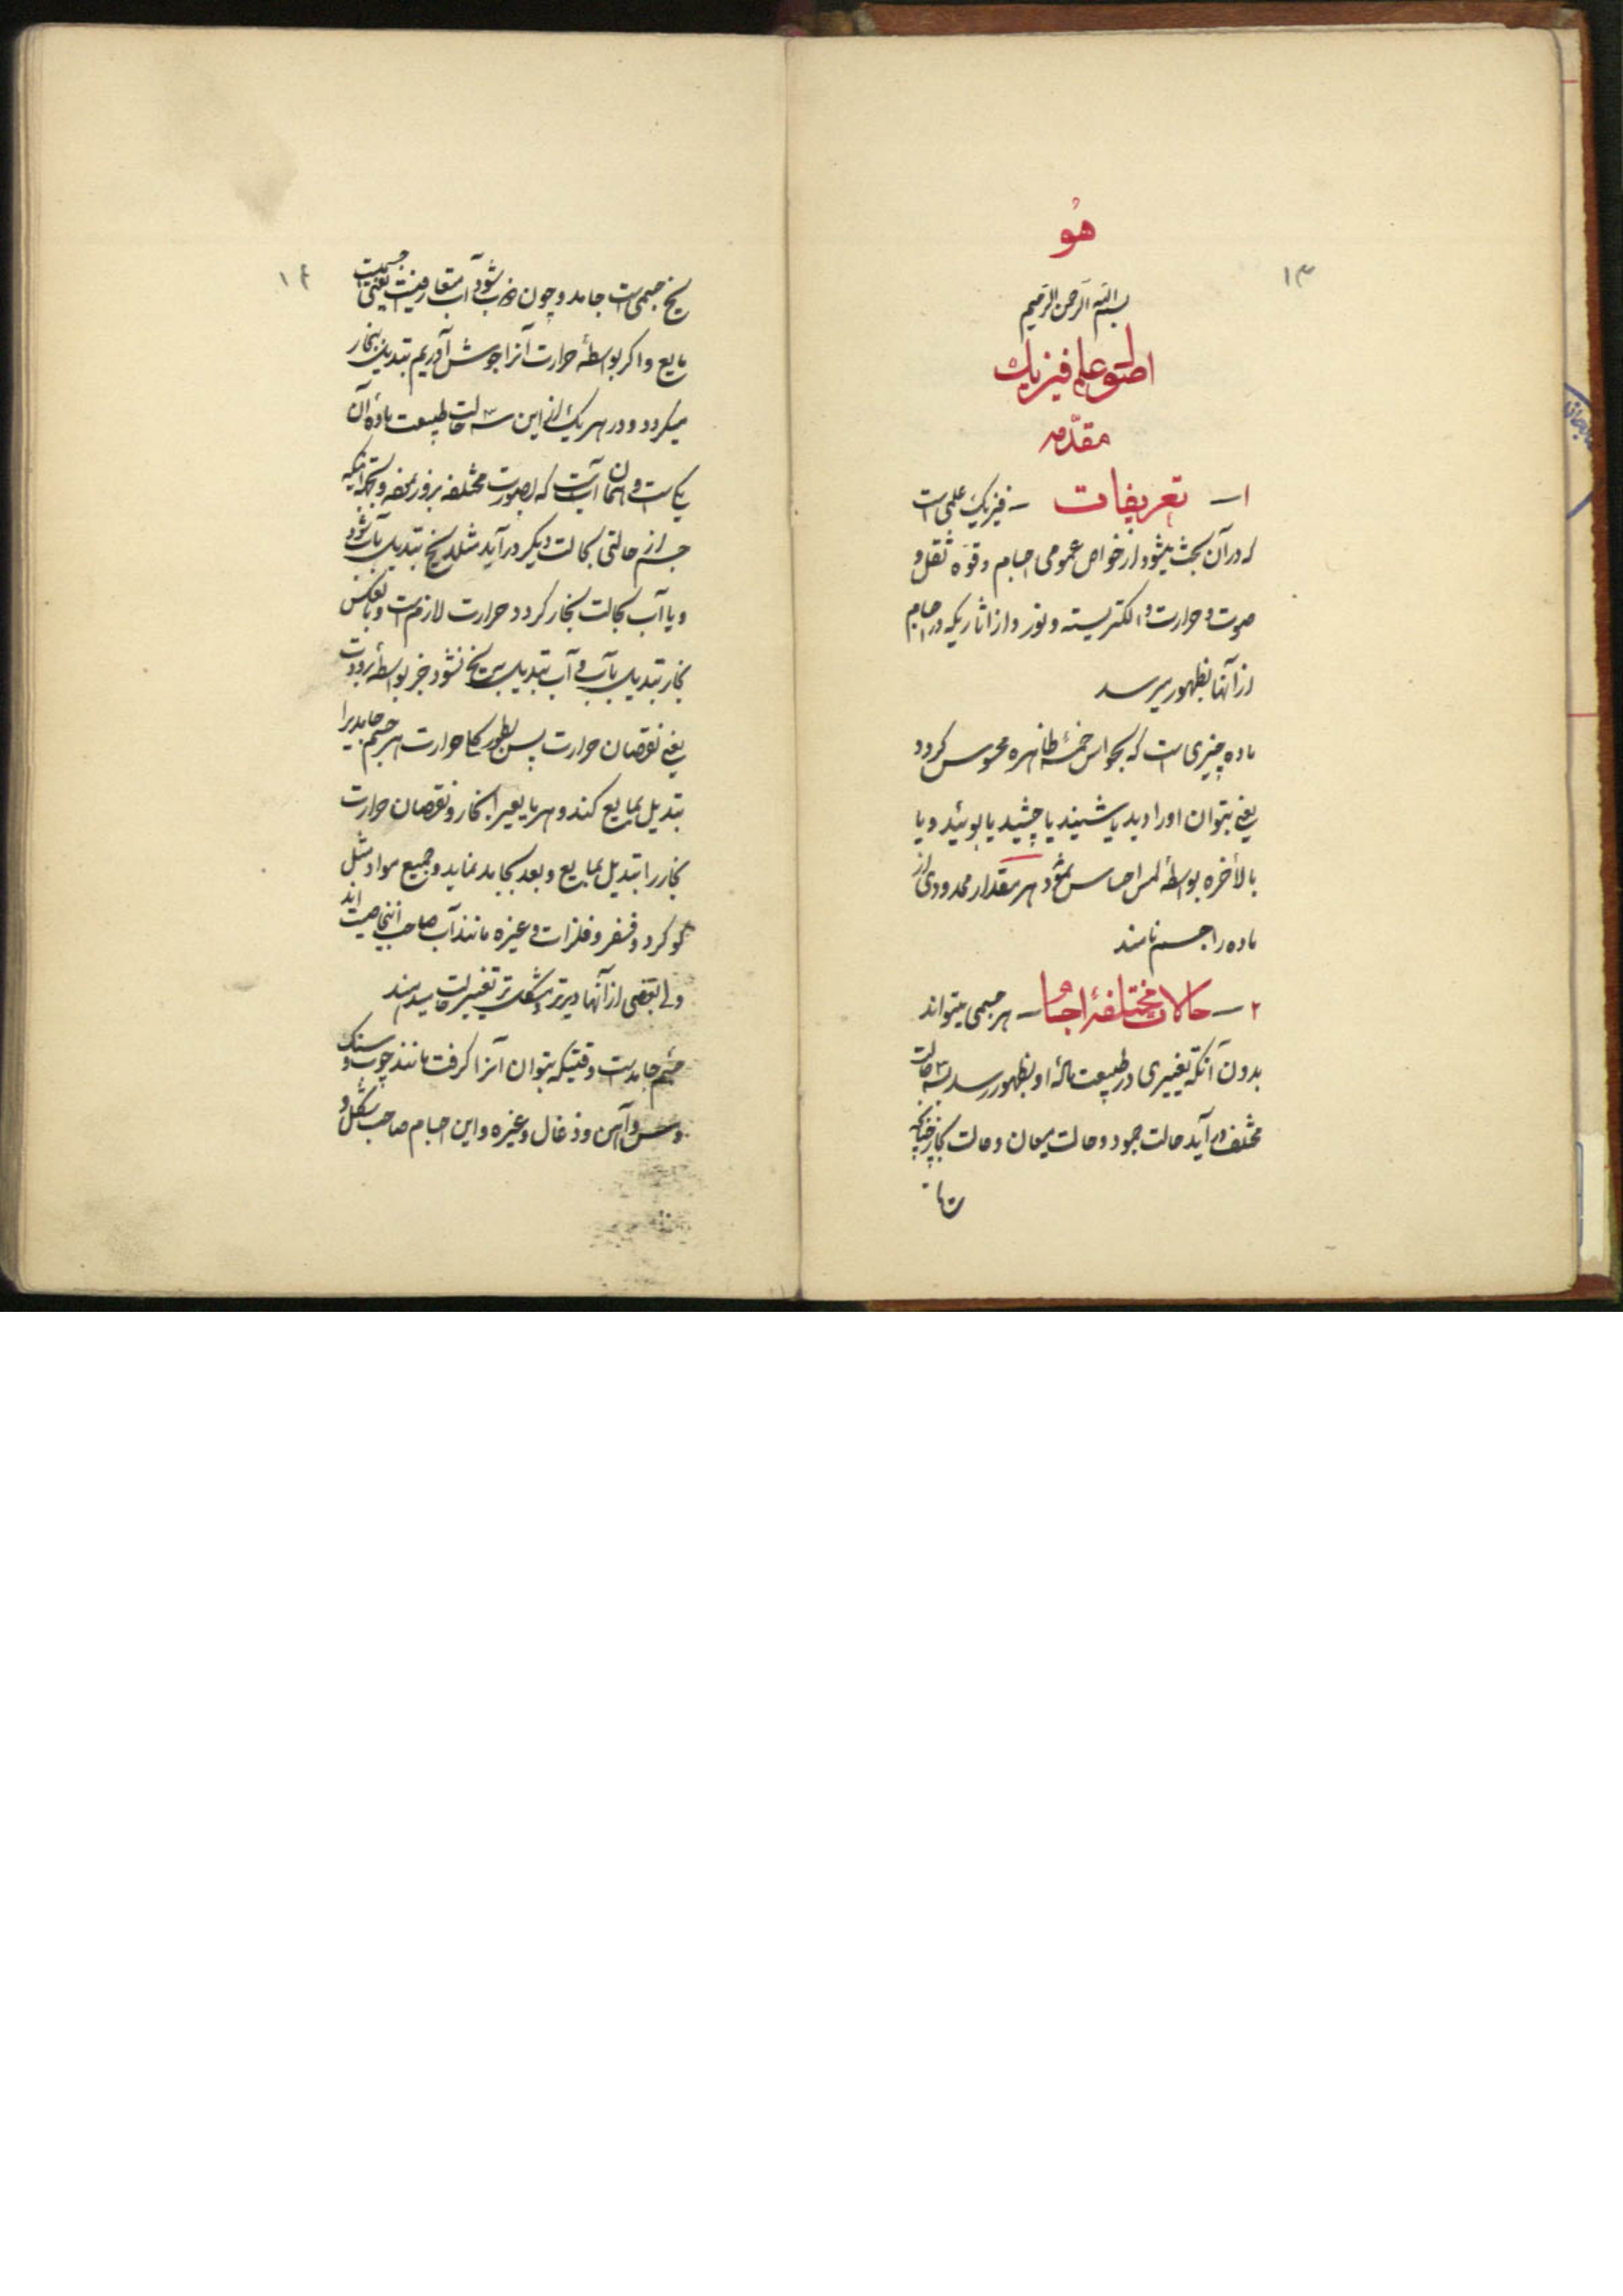 ۱۳
هُو
بسم الله الرحمن الرحیم
اصول علم فیزیک
مقدّمه
۱ — تعریفات — فیزیک علمی است
که در آن بحث میشود از خواص عمومی اجسام و قوّه ثقل و
صوت و حرارت و الکتریسته و نور و از اثاریکه در اجسام
از آنها بظهور میرسد
ماده چیزی است که بحواس خمسهٔ ظاهره محسوس کردد
یعنی بتوان او را دید یا شنید یا چشید یا بوئید و یا
بالاخره بواسطهٔ لمس احساس نمود هر مقدار محدودی از
ماده را جسم نامند
۲ — حالات مختلفهٔ اجسام — هر جسمی میتواند
بدون آنکه تغییری در طبیعت مادهٔ او بظهور رسد بسه حالت
مختلف در آید حالت جمود و حالت میعان و حالت بخار چنانکه
۱۴
یخ جسمی است جامد و چون ذوب شود آب متعارفیست یعنی جسمیست
مایع و اکر بواسطهٔ حرارت آنرا جوش آوریم تبدیل ببخار
میکردد و در هر یک از این سه حالت طبیعت مادهٔ آن
یکی است و همان آبست که بصورت مختلفه بروز نموده و بجهة اینکه
جسم از حالتی بحالت دیکر در آید مثلا یخ تبدیل بآب شود
و یا آب بحالت بخار کردد حرارت لازم است و بالعکس
بخار تبدیل بآب و آب تبدیل به یخ نشود جز بواسطهٔ برودت
یعنی نقصان حرارت پس بطور کلی حرارت هر جسم جامدیرا
تبدیل بمایع کند و هر مایعیرا بخار و نقصان حرارت
بخار را تبدیل بمایع و بعد بجامد نماید و جمیع مواد مثل
کوکرد و فسفر و فلزات و غیره مانند آب صاحب اینخاصیت اند
ولی بعضی از آنها دیرتر و بشکلی تغییر حالت میدهند
جسم جامد است وقتیکه بتوان آنرا کرفت مانند چوب و سنک
و مس و آهن و ذغال و غیره و این اجسام صاحب شکل و